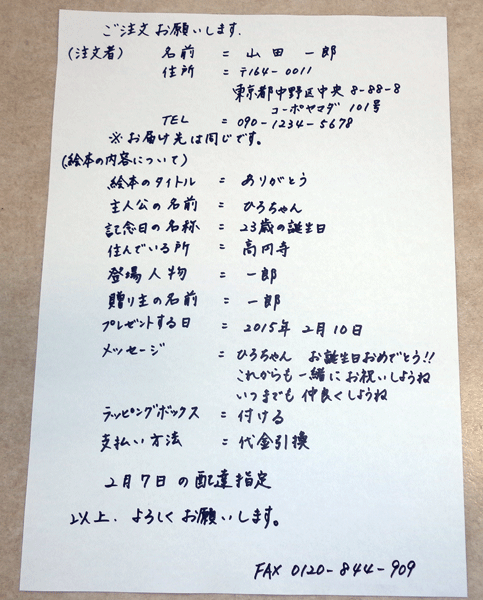 ご注文お願いします.
(注文者) 名前 = 山田 一郎
住所 = 〒164-0011
東京都中野区中央 8-88-8
コーポヤマダ 101号
TEL = 090-1234-5678
※お届け先は同じです。
(絵本の内容について)
絵本のタイトル = ありがとう
主人公の名前 = ひろちゃん
記念日の名称 = 23歳の誕生日
住んでいる所 = 高円寺
登場人物 = 一郎
贈り主の名前 = 一郎
プレゼントする日 = 2015年 2月10日
メッセージ = ひろちゃん お誕生日おめでとう!!
これからも一緒にお祝いしようね
いつまでも仲良くしようね
ラッピングボックス = 付ける
支払い方法 = 代金引換
2月7日の配達指定
以上. よろしくお願いします。
FAX 0120-844-909